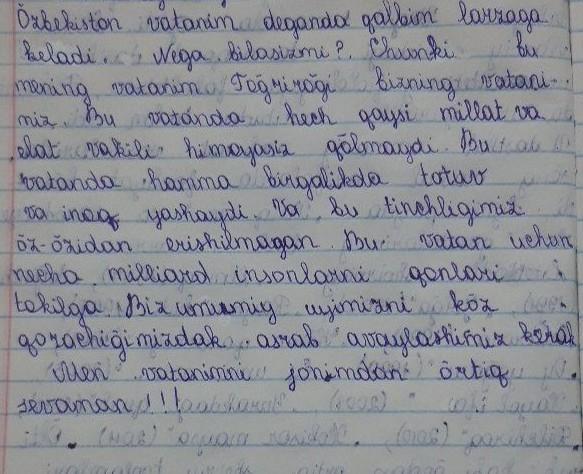 Özbekiston vatanim deganda qalbim larzaga
keladi. Nega bilasizmi? Chunki bu
mening vatanim Toğriroği bizning vatani-
miz. Bu vatanda hech qaysi millat va
elat vakili himoyasiz qölmaydi. Bu
vatanda hamma birgalikda totuv
va inoq yashaydi. Va bu tinchligimiz
öz-özidan erishilmagan. Bu vatan uchun
necha milliard insonlarni qonlari
tokilga. Biz umumiy uyimizni köz
qorachiğimizdak asrab avaylashimiz kerak
Men vatanimni jonimdan örtiq
sevaman!!!